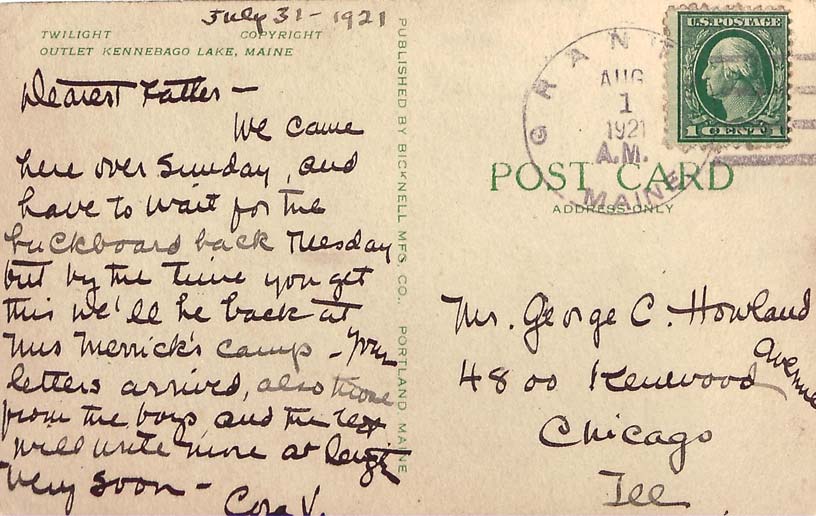 July 31 - 1921
TWILIGHT COPYRIGHT
OUTLET KENNEBAGO LAKE, MAINE
Dearest Father -
We came
here over Sunday, and
have to wait for the
buckboard back Tuesday
but by the time you get
this we'll be back at
Mrs Merrick's camp - Your
letters arrived, also those
from the boys, and the rest
will write more at length
very soon -
Cora V.
PUBLISHED BY BICKNELL MFG. CO., PORTLAND MAINE
GRANT
AUG
1
1921
A.M.
MAINE
U.S. POSTAGE
1 CENT 1
POST CARD
ADDRESS ONLY
Mr. George C. Howland
4800 Kenwood Avenue
Chicago
Ill